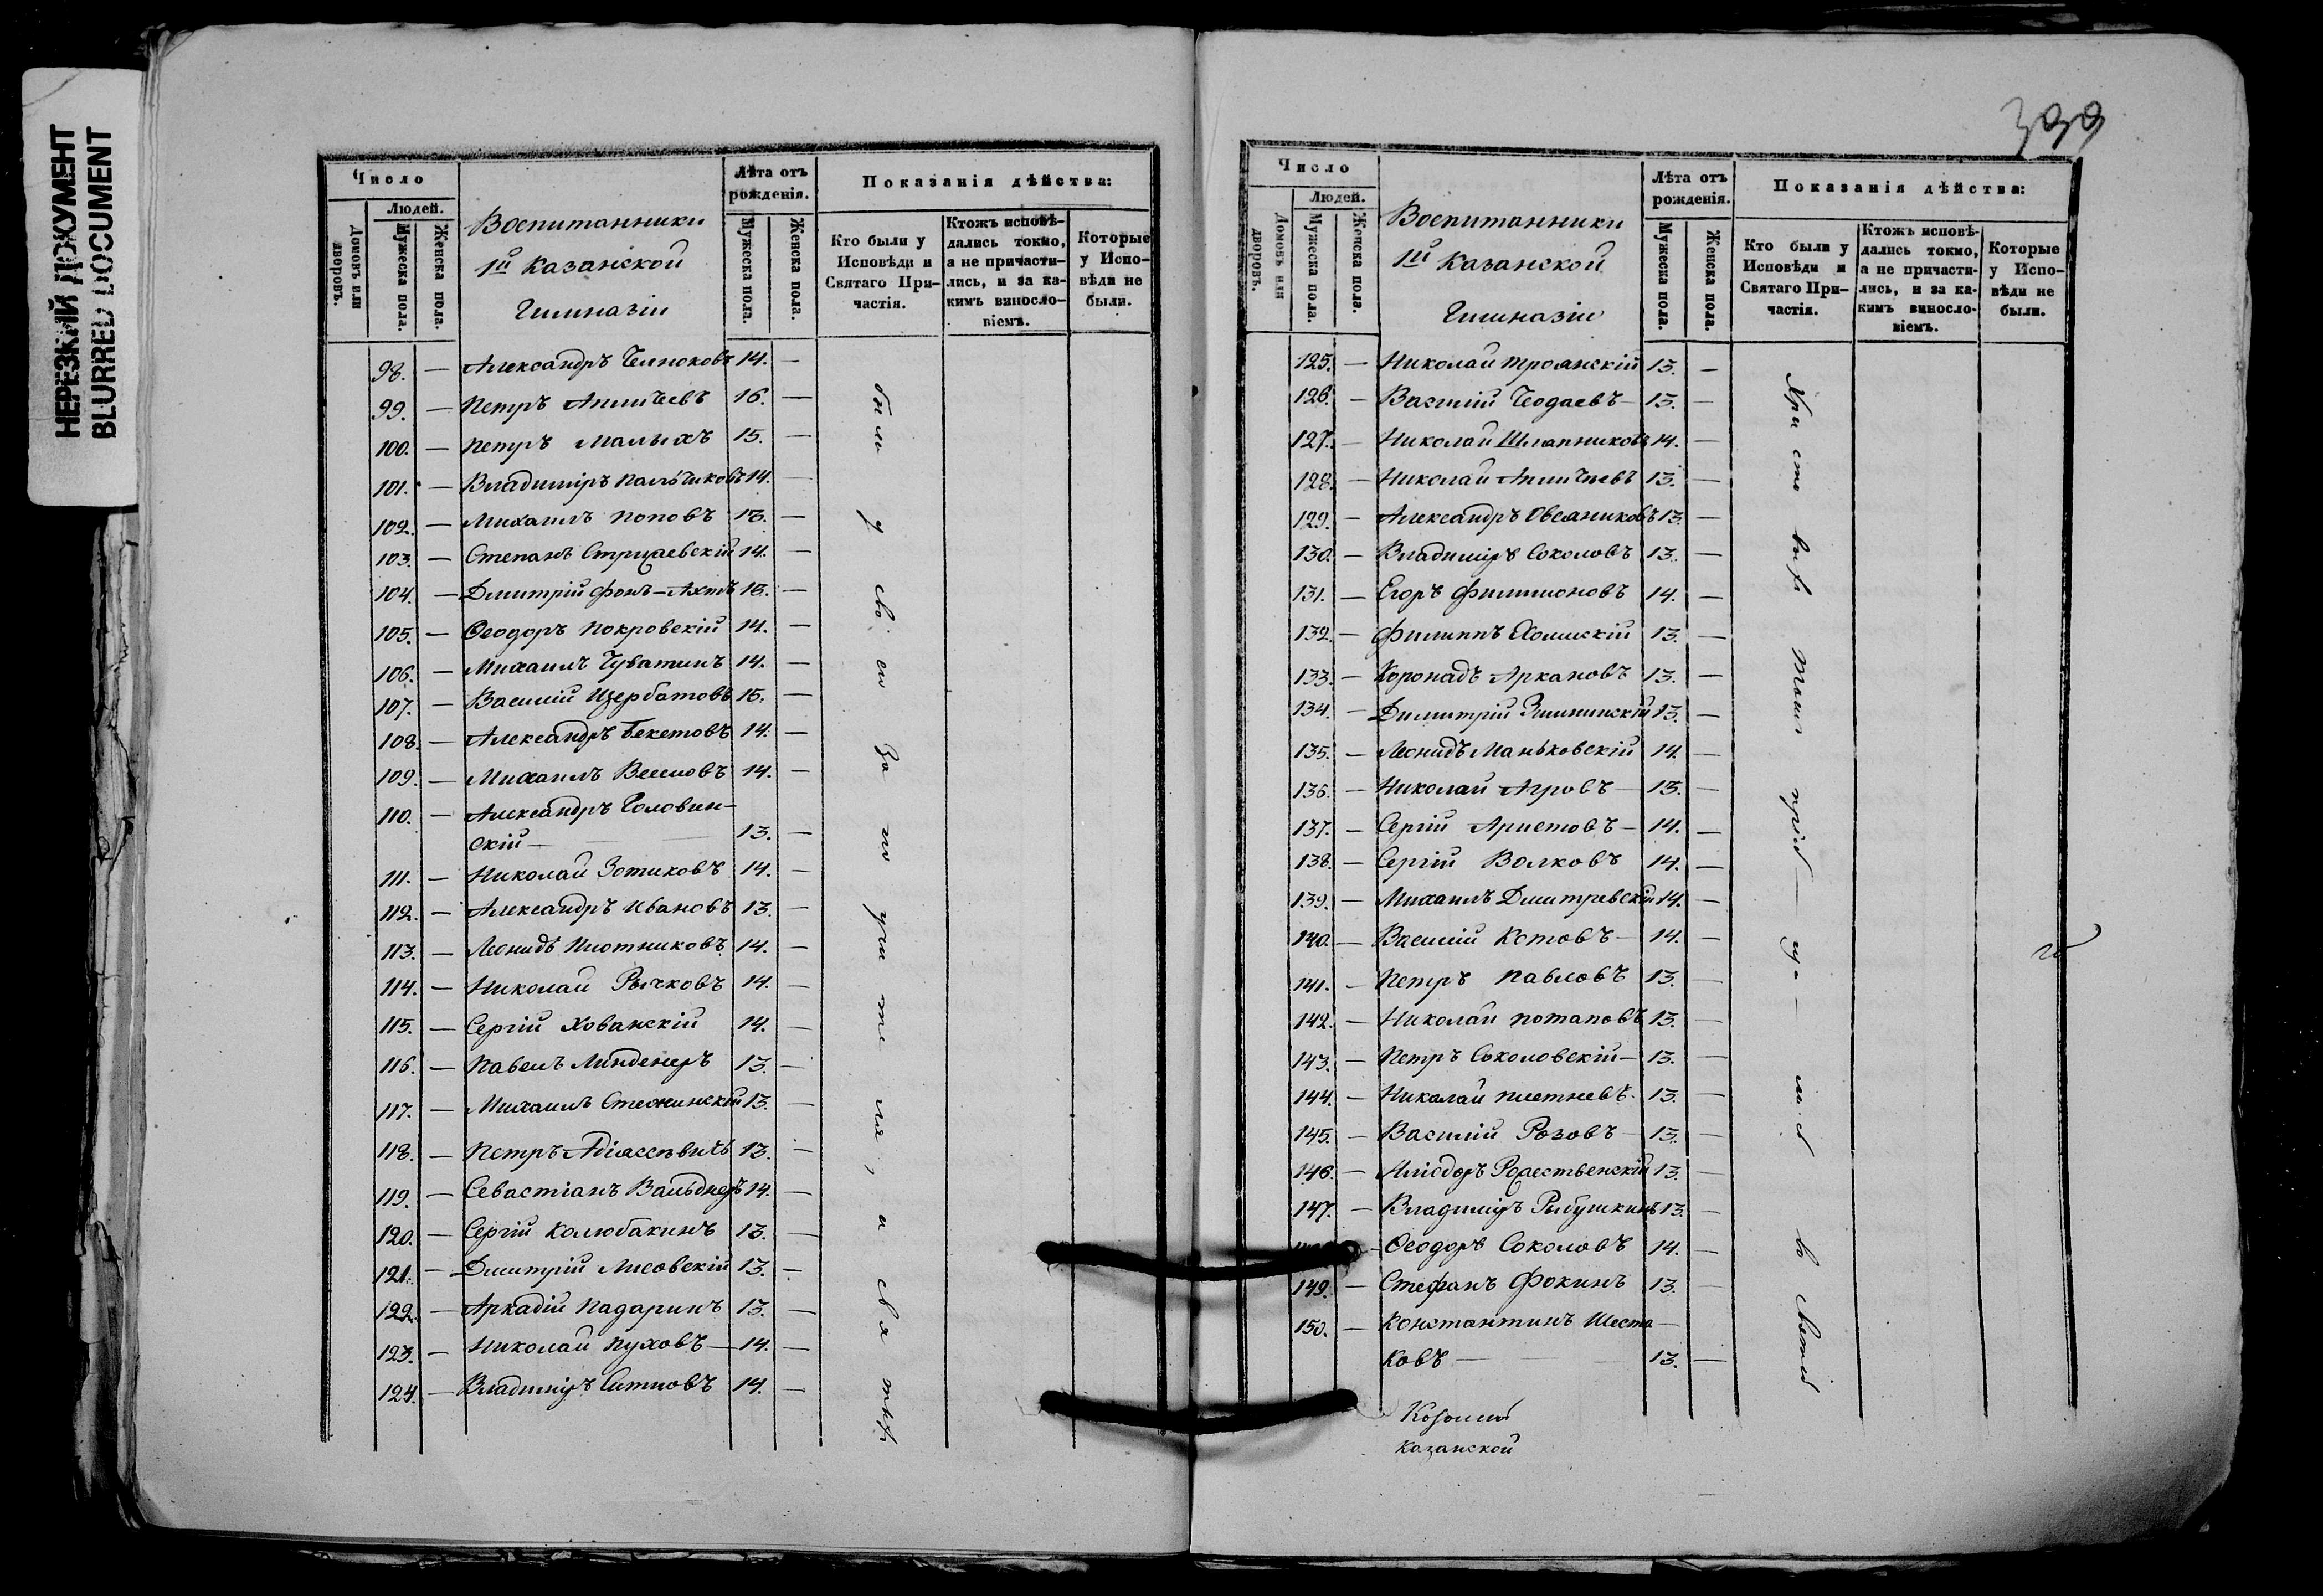 НЕРЕЗКИЙ ДОКУМЕНТ
BLURRED DOCUMENT
Число
Людей.
Домовъ или дворовъ.
Мужеска пола.
Женска пола.
Воспитанники
1й Казанской
Гимназіи
Лѣта отъ рожденія.
Мужеска пола.
Женска пола.
Показанія дѣйства:
Кто были у Исповѣди и Святаго При-частія.
Ктожъ исповѣ-дались токмо, а не причасти-лись, и за ка-кимъ винословіемъ.
Которые у Испо-вѣди не были.
98. — Александръ 14. —
99. — Петръ Аничевъ 16. —
100. — Петръ Малыхъ 15. —
101. — Владиміръ Пальчиковъ 14. —
102. — Михаилъ Поповъ 13. —
103. — Степанъ 14. —
104. — Дмитрій фонъ-Ахтъ 15. —
105. — Ѳеодоръ Покровскій 14. —
106. — Михаилъ Чуватинъ 14. —
107. — Василій Щербатовъ 15. —
108. — Александръ Бекетовъ 14. —
109. — Михаилъ 14. —
110. — Александръ Головин-
скій — 13. —
111. — Николай Зотиковъ 14. —
112. — Александръ Ивановъ 13. —
113. — Леонидъ Плотниковъ 14. —
114. — Николай Рычковъ 14. —
115. — Сергій Хованскій 14. —
116. — Павелъ Линденеръ 13. —
117. — Михаилъ 13. —
118. — Петръ 13. —
119. — Севастіанъ Вальднеръ 14. —
120. — Сергій Колюбакинъ 13. —
121. — Дмитрій Лисовскій 13. —
122. — Аркадій Падаринъ 13. —
123. — Николай Пуховъ — 14. —
124. — Владиміръ Ситновъ 14. —
были у своего законоучителя, а святыхъ
399
Число
Людей.
Домовъ или дворовъ.
Мужеска пола.
Женска пола.
Воспитанники
1й Казанской
Гимназіи
Лѣта отъ рожденія.
Мужеска пола.
Женска пола.
Показанія дѣйства:
Кто были у Исповѣди и Святаго При-частія.
Ктожъ исповѣ-дались токмо, а не причасти-лись, и за ка-кимъ винословіемъ.
Которые у Испо-вѣди не были.
125. — Николай Троянскій 13. —
126. — Василій Чеодаевъ — 13. —
127. — Николай Шляпниковъ 14. —
128. — Николай 13. —
129. — Александръ Овсяниковъ 13. —
130. — Владиміръ Соколовъ 13. —
131. — Егоръ Филимоновъ 14. —
132. — Филиппъ Хомскій 13. —
133. — Аркановъ 13. —
134. — Димитрій 13. —
135. — Леонидъ Маньковскій 14. —
136. — Николай Агровъ — 13. —
137. — Сергій Аристовъ — 14. —
138. — Сергій Волковъ 14. —
139. — Михаилъ Дмитревскій 14. —
140. — Василій Котовъ — 14. —
141. — Петръ Павловъ 13. —
142. — Николай Потаповъ 13. —
143. — Петръ Соколовскій — 13. —
144. — Николай Плетневъ 13. —
145. — Василій Розовъ — 13. —
146. — Иліодоръ Рождественскій 13. —
147. — Владиміръ Рыбушкинъ 13. —
— Ѳеодоръ Соколовъ 14. —
149. — Стефанъ Фокинъ 13. —
150. — Константинъ Шеста-
ковъ — 13. —
Христовыхъ Таинъ пріоб-ща-лись въ святой
Казанской